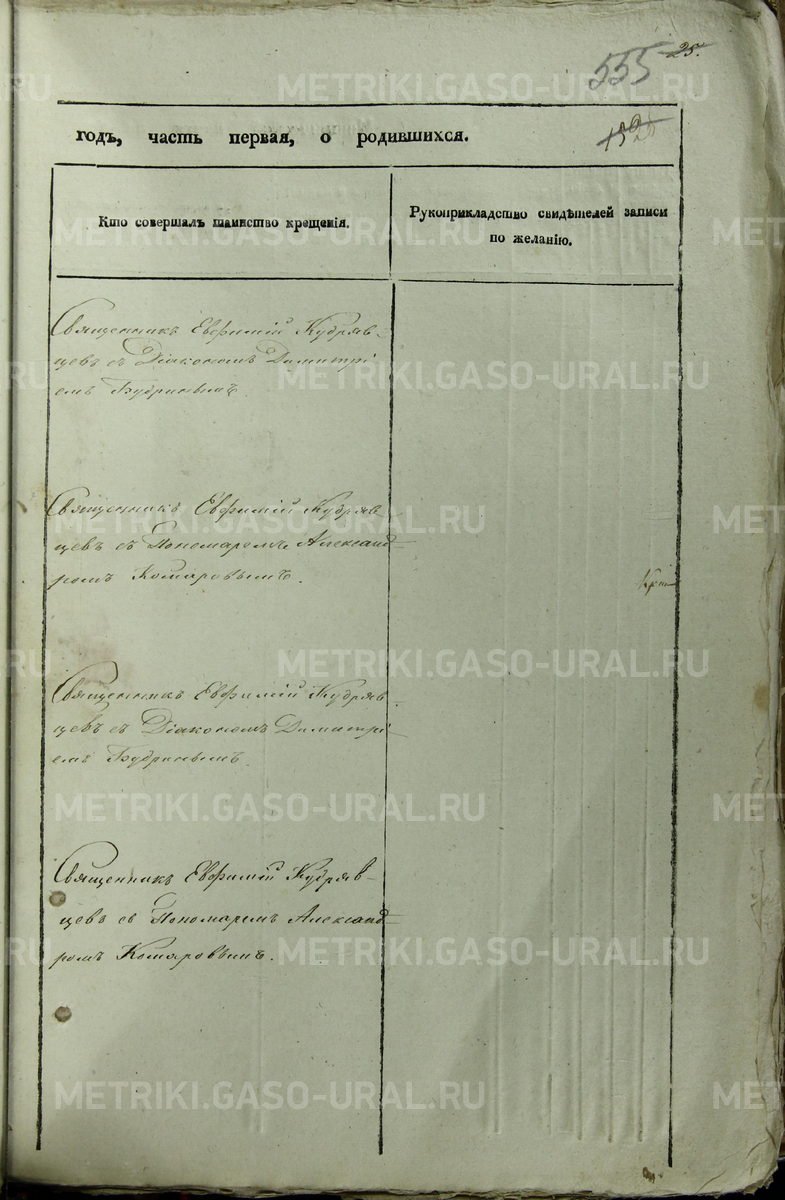 555 25.
годъ, часть первая, о родившихся.
Кто совершалъ таинство крещенія.
Рукоприкладство свидѣтелей записи
по желанію.
Священникъ Евфимій Кудряв-
цевъ съ Діакономъ Димитрі
емъ Будринымъ.
Священникъ Евфимій Кудряв
цевъ съ Пономаремъ Александ
ромъ Комаровымъ.
Священникъ Евфимій Кудряв
цевъ съ Діакономъ Димитрі
емъ Будринымъ.
Священникъ Евфимій Кудряв-
цевъ съ Пономаремъ Александ
ромъ Комаровымъ.
METRIKI.GASO-URAL.RU